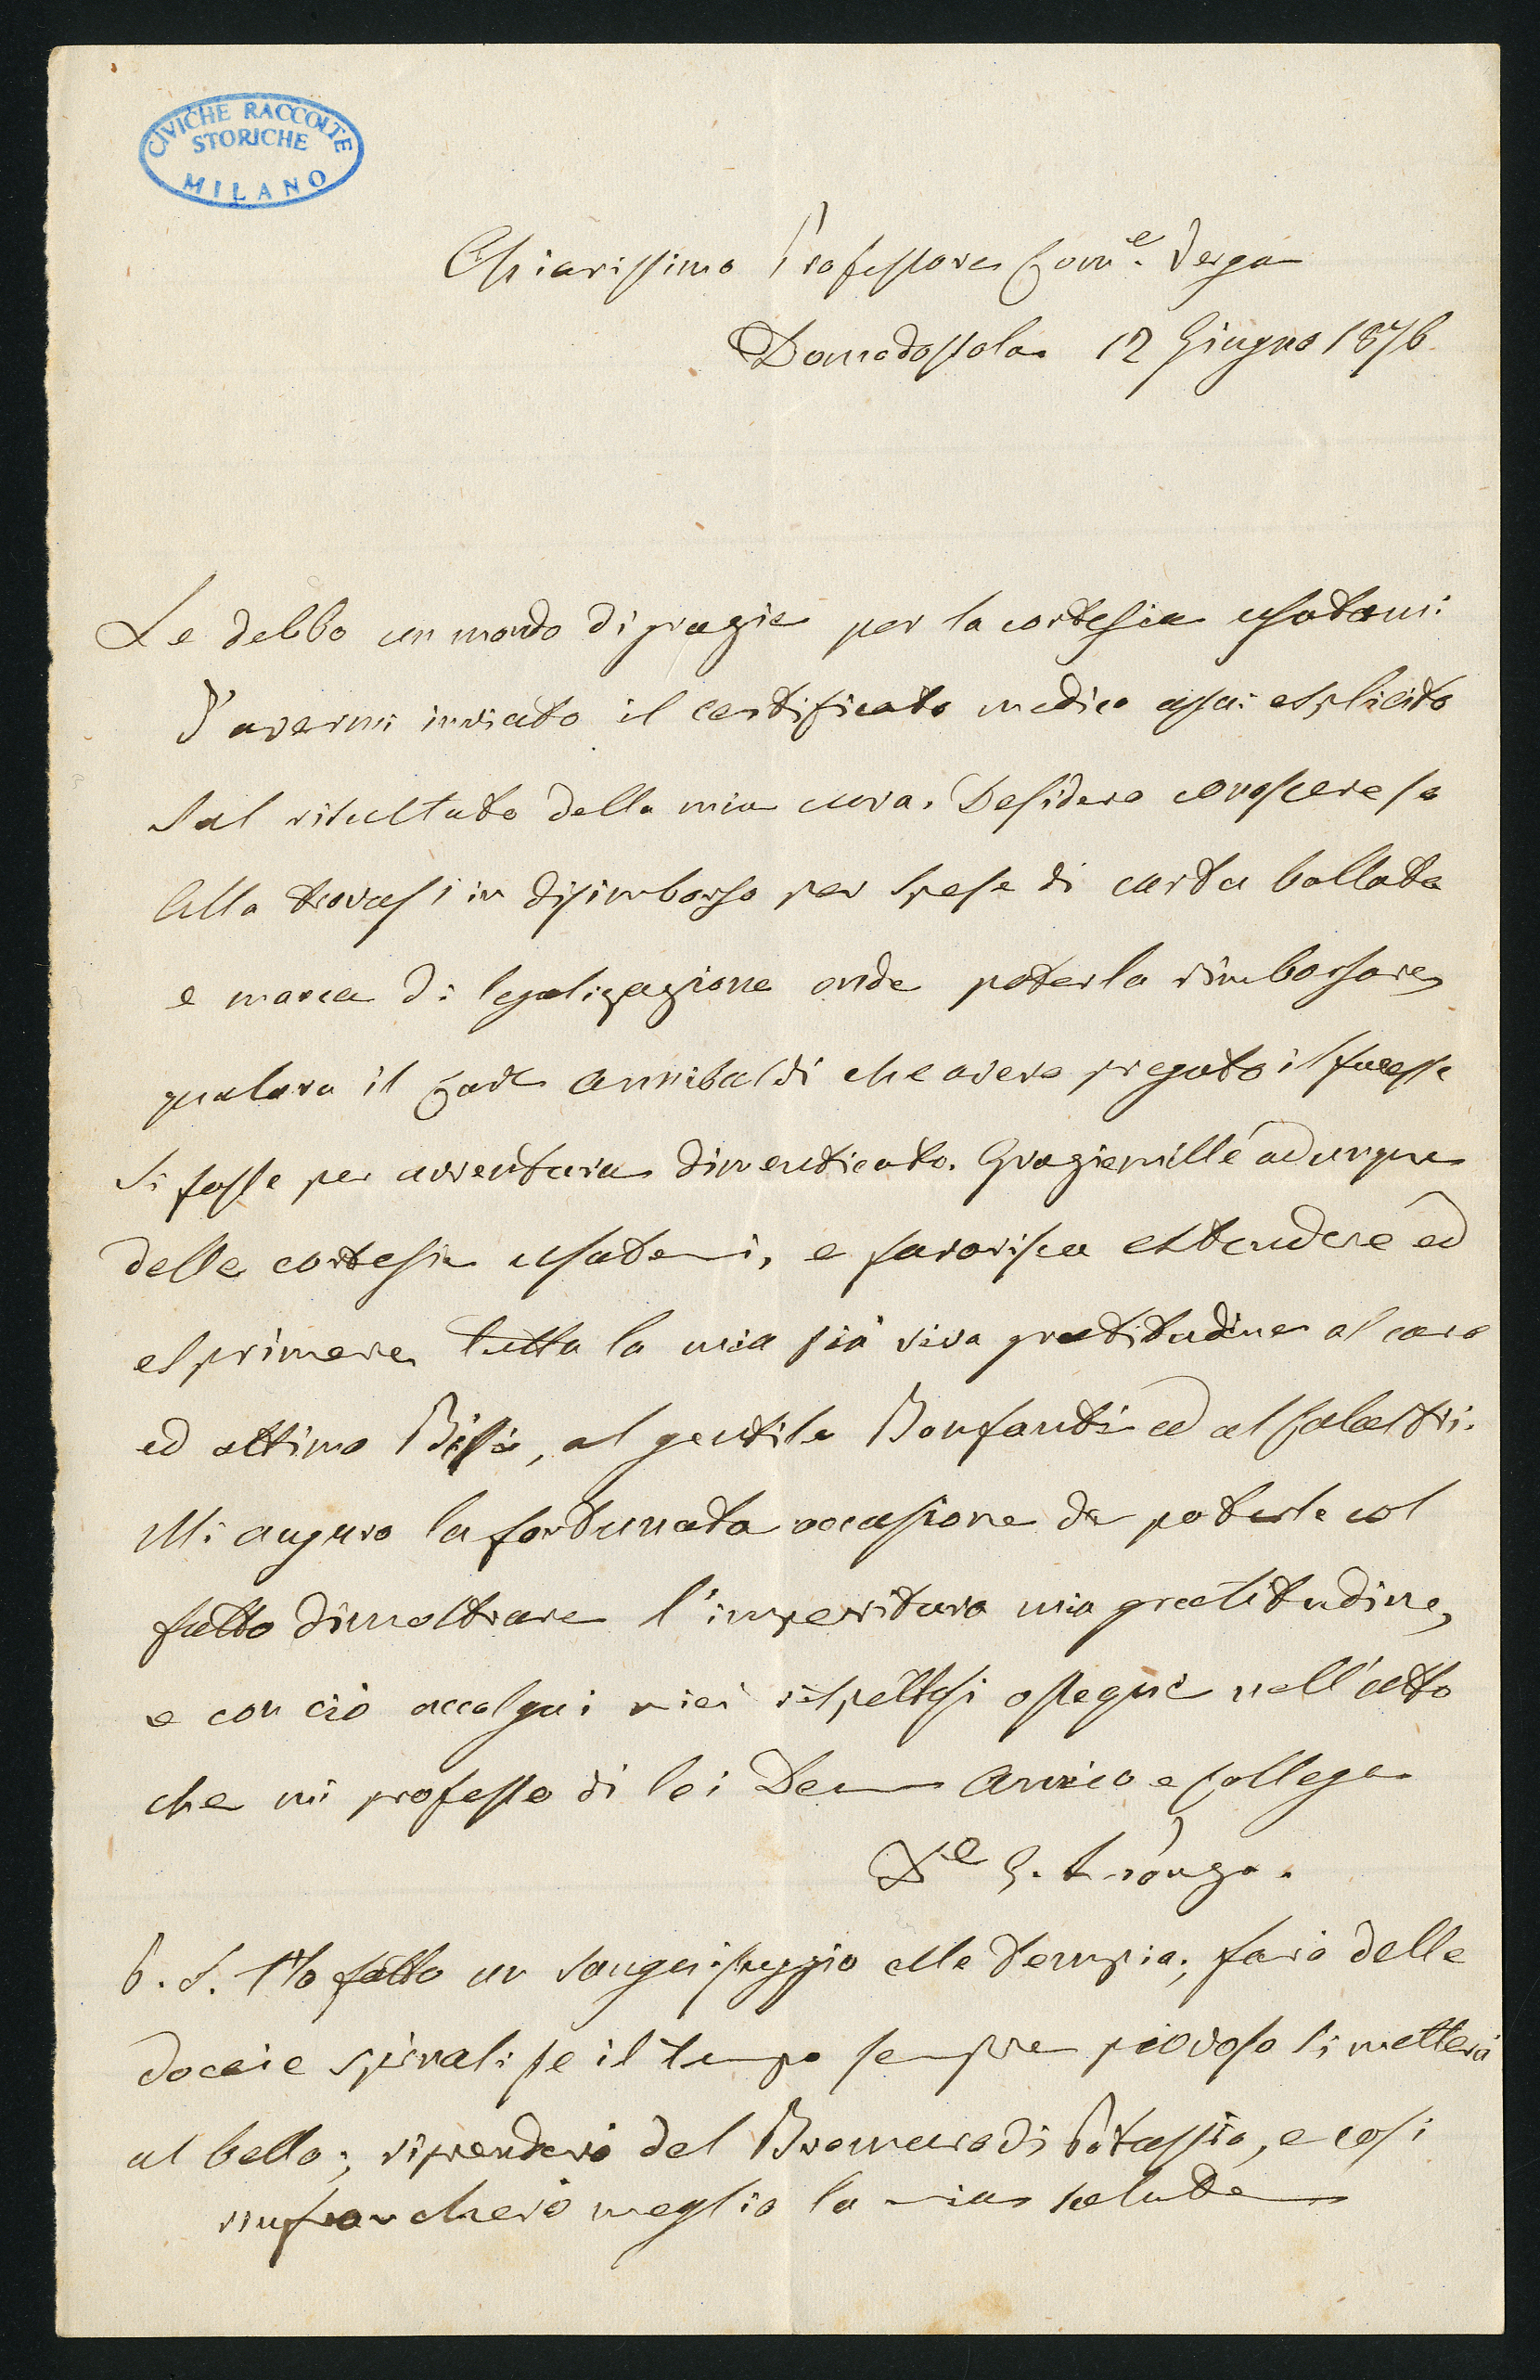 CIVICHE RACCOLTE
STORICHE
MILANO
Chiarissimo Professore Com.e Verga
Domodossola 12 Giugno 1876
Le debbo un mondo di grazie per la cortesia usatami
d'avermi inviato il certificato medico assai esplicito
sul risultato della mia cura. Desidero conoscere se
Ella trovasi in disimborso per spese di carta bollata
e marca di legalizzazione onde poterla rimborsare
qualora il Annibaldi che avevo pregato il facesse
si fosse per avventura dimenticato. Grazie mille adunque
delle cortesie usatemi, e favorisca estendere ed
esprimere tutta la mia più viva gratitudine al caro
ed ottimo al gentile Bonfanti ed al
Mi auguro la fortunata occasione da poterle col
fatto dimostrare l'imperitura mia gratitudine,
e con ciò accolga i miei rispettosi ossequi nell'atto
che mi professo di lei Amico e Collega
D.e G.
P. S. Ho fatto un sanguisuggio alle tempia; farò delle
doccie spinali se il tempo sempre piovoso si metterà
al bello; riprenderò del Bromuro di Potassio, e così
rinfrancherò meglio la mia salute